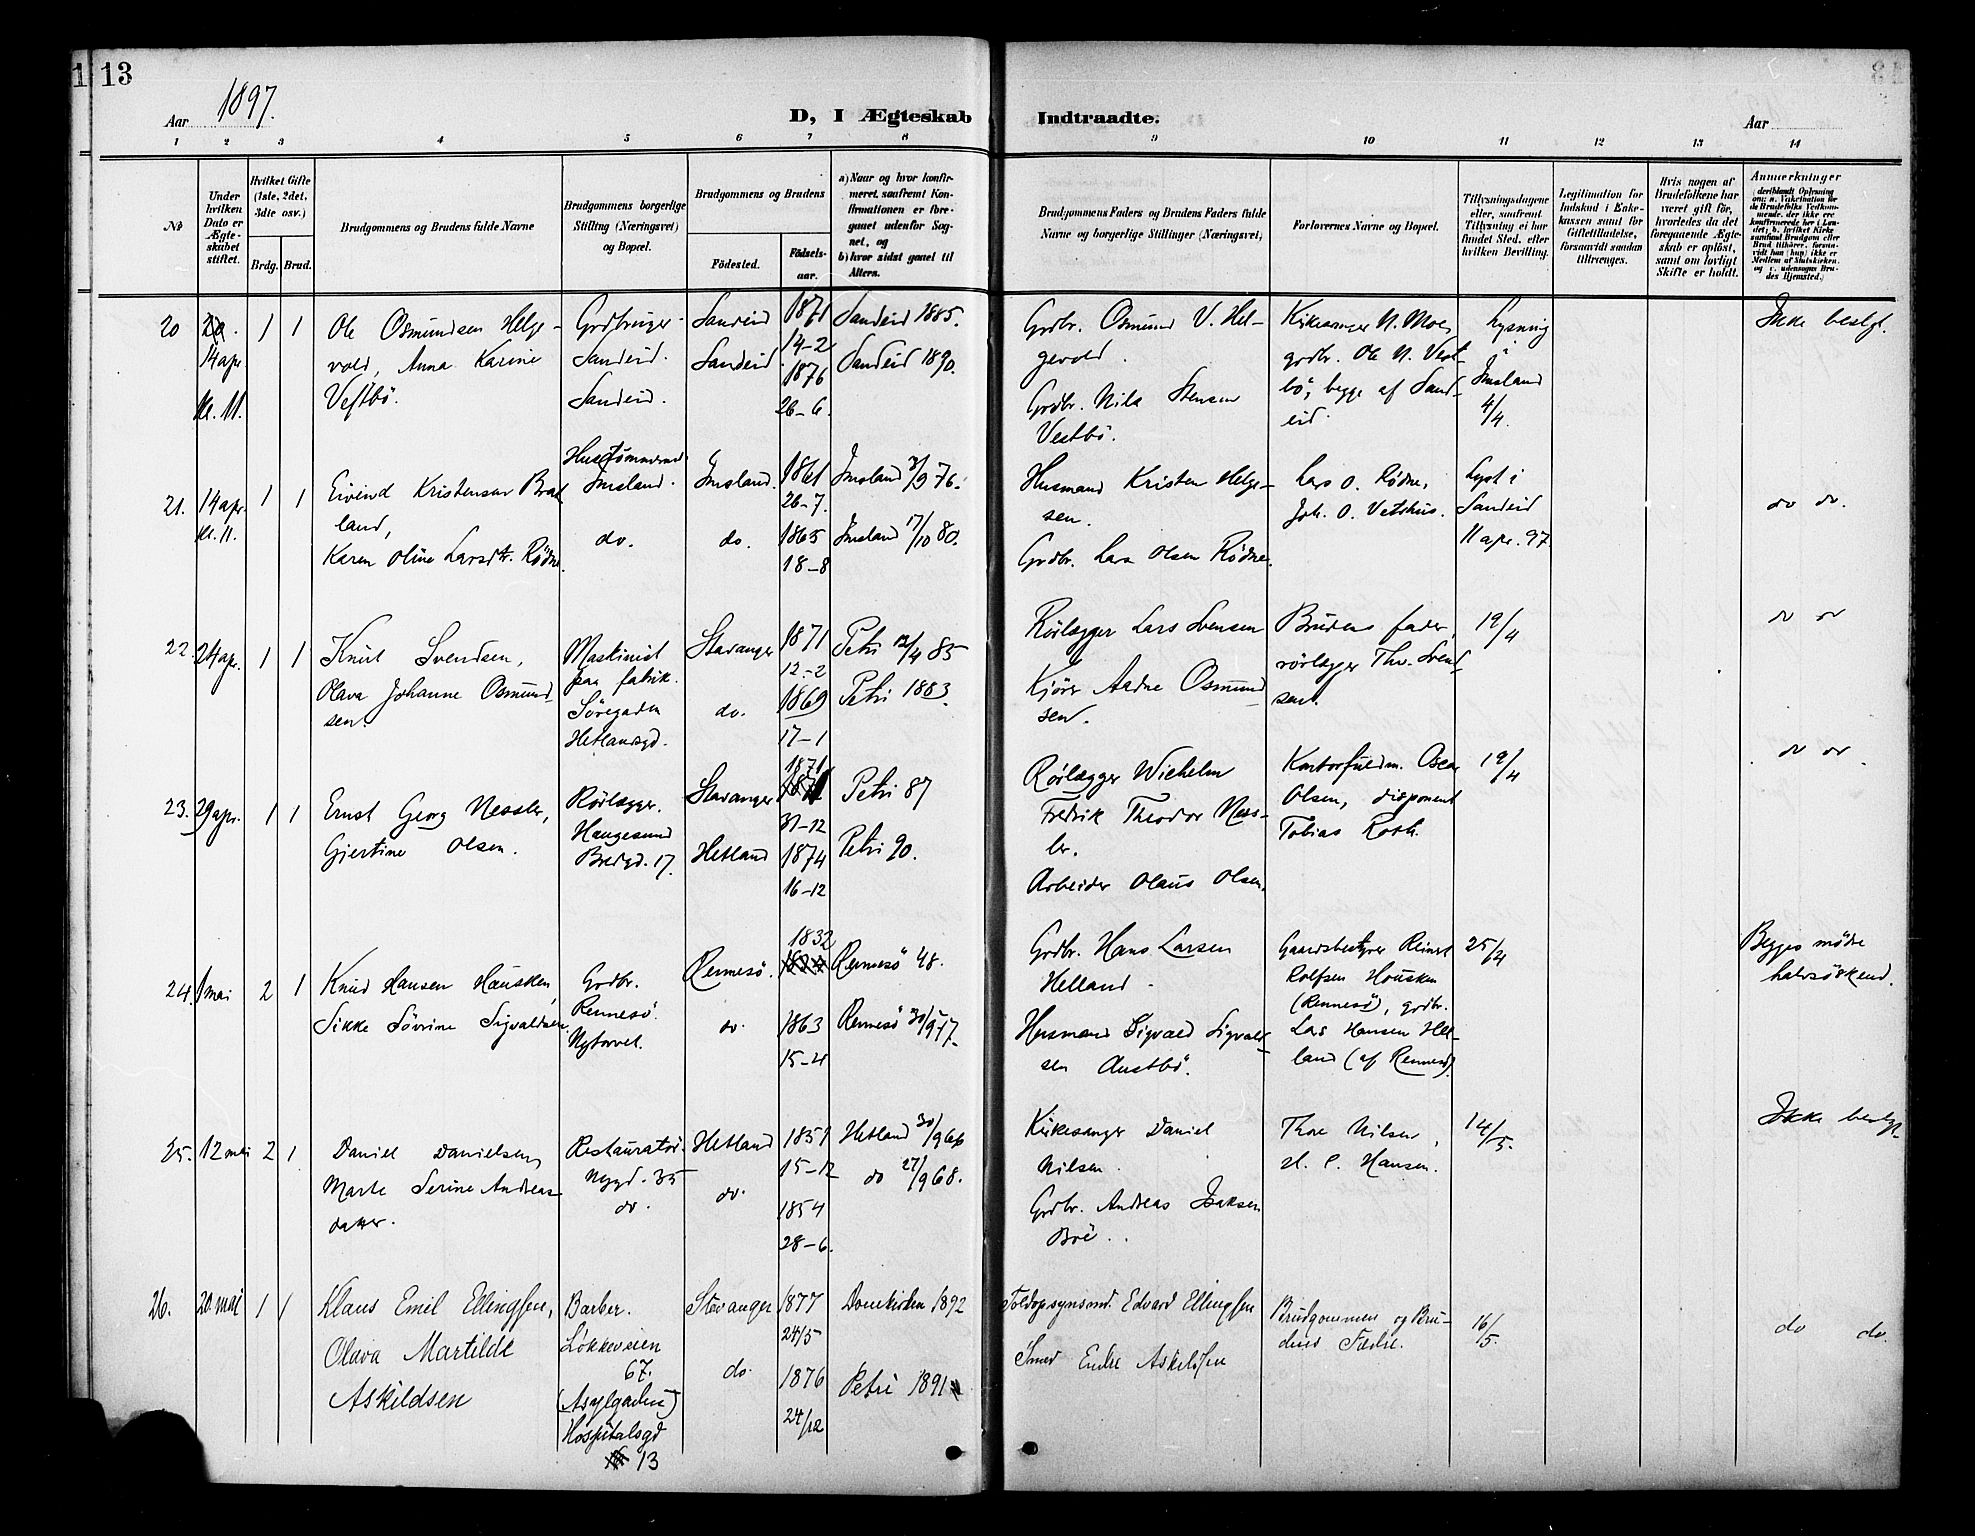 13
Aar 1897.
D, I Ægteskab Indtraadte.
Aar
1 2 3 4 5 6 7 8 9 10 11 12 13 14
No
Under hvilken Dato er Ægteskabet stiftet.
Hvilket Gifte (1ste, 2det, 3die osv.)
Brdg. Brud.
Brudgommens og Brudens fulde Navne
Brudgommens borgerlige Stilling (Næringsvei) og Bopæl.
Brudgommens og Brudens
Fødested.
Fødselsaar.
a) Naar og hvor konfirmeret, saafremt Konfirmationen er foregaaet udenfor Sognet, og
b) hvor sidst gaaet til Alters.
Brudgommens Faders og Brudens Faders fulde Navne og borgerlige Stillinger (Næringsvei)
Forlovernes Navne og Bopæl.
Tillysningsdagene eller, saafremt Tillysning ei har fundet Sted, efter hvilken Bevilling.
Legitimation for Indskud i Enkekassen samt Giftetilladelse, forsaavidt saadan tiltrænges.
Hvis nogen af Brudefolkene har været gift før, hvorledes da det foregaaende Ægteskab er opløst, samt om lovligt Skifte er holdt.
Anmærkninger
20 14 apr kl. 11. 1 1
Ole Osmundsen Helgevold, Anna Karine Vestbö.
Grdbruger Sandeid. Sandeid.
Sandeid Sandeid
1871 14-2 1876 26-6.
Sandeid 1885. Sandeid 1890.
Grdbr. Osmund V. Helgevold.
Grdbr. Nils Stensen Vestbö.
Kirkesanger N. Moe, grdbr. Ole N. Vestbö, begge af Sandeid.
Lysning i Imsland 4/4.
Ikke beslgt.
21. 14 apr. kl. 11. 1 1
Eivind Kristensen Braland,
Karen Oline Larsdtr. Rødne.
Imsland. do.
Imsland. do.
1861 26-7. 1865 18-8
Imsland 3/9 76. Imsland 17/10 80.
Husmand Kristen Helgesen.
Grdbr. Lars Olsen Rødne.
Lars O. Rødne, Joh. O. Vetshus.
Lyst i Sandeid 11 apr. 97.
do do.
22. 24 apr. 1 1
Knut Svendsen,
Olava Johanne Osmundsen.
Maskinist paa fabrik. Söregaden Hetlandsgd.
Stavanger do.
1871 12-2 1869 17-1
Petri 12/4 85 Petri 1883.
Rörlægger Lars Svensen
Kjörer Aadne Osmundsen.
Brudens fader, rörlægger Thv. Svendsen.
19/4
do do
23. 29 apr. 1 1
Ernst Georg Nessler,
Gjertine Olsen.
Rörlægger. Haugesund Bredgd. 17.
Stavanger Hetland
1871 31-12 1874 16-12
Petri 87 Petri 90.
Rörlægger Wilhelm Fredrik Theodor Nessler.
Arbeider Olaus Olsen.
Kontorfuldm. Oscar Olsen, disponent Tobias Roth.
19/4
do do
24. 1 mai 2 1
Knud Hansen Hausken,
Sikke Sövrine Sigvaldsen.
Grdbr. Rennesö. Nytorvet.
Rennesö. do.
1832 1863 15-4
Rennesö 48. Rennesö 30/9 77.
Grdbr. Hans Larsen Helland.
Husmand Sigvald Sigvaldsen Austbö.
Gaardsbestyrer Reinert Rolfsen Housken (Rennesö), grdbr. Lars Hansen Helland (af Rennesö).
25/4
Begges mødre halvsöskend.
25. 12 mai 2 1
Daniel Danielsen,
Marte Serine Andreasdatter.
Restauratör. Nygd. 35 do.
Hetland do.
1851 15-12 1854 28-6.
Hetland 30/9 66 do 27/9 68.
Kirkesanger Daniel Nilsen.
Grdbr. Andreas Isaksen Böe.
Thore Nilsen, H. C. Hansen.
14/5.
Ikke beslgt.
26. 20. mai 1 1
Klaus Emil Ellingsen,
Olava Martilde Askildsen
Barber. Løkkeveien 67. (Asylgaden) Hospitalsgd 13
Stavanger do
1877 24/5 1876 24/12
Domkirken 1892 Petri 1891
Toldopsynsmd. Edvard Ellingsen
Smed Endre Askildsen
Brudgommen og Brudens Fædre.
16/5.
do do.